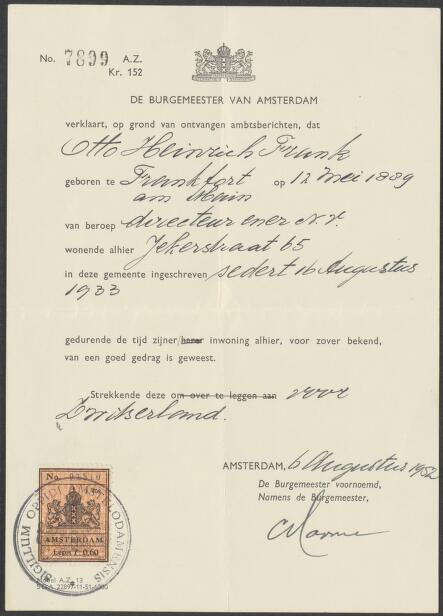 No. 7899 A.Z.
Kr. 152
DE BURGEMEESTER VAN AMSTERDAM
verklaart, op grond van ontvangen ambtsberichten, dat
Otto Heinrich Frank
geboren te Frankfort op 12 Mei 1889
am Main
van beroep directeur ener N.V.
wonende alhier Jekerstraat 65
in deze gemeente ingeschreven sedert 16 Augustus
1933
gedurende de tijd zijner/harer inwoning alhier, voor zover bekend,
van een goed gedrag is geweest.
Strekkende deze om over te leggen aan voor
Zwitserland.
AMSTERDAM, 6 Augustus 1952
De Burgemeester voornoemd,
Namens de Burgemeester,
No. 03510
AMSTERDAM
Leges f. 0.60
SIGILLUM OPPIDI AMSTELODAMENSIS
Model A.Z. 13